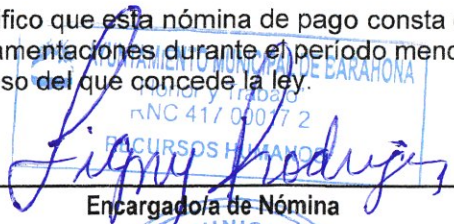 ifico que esta nómina de pago consta
amentaciones durante el período menc
so del que concede la ley.
AYUNTAMIENTO MUNICIPAL DE BARAHONA
Honor y Trabajo
RNC 417 00017 2
RECURSOS HUMANOS
Ligny Rodríguez
Encargado/a de Nómina